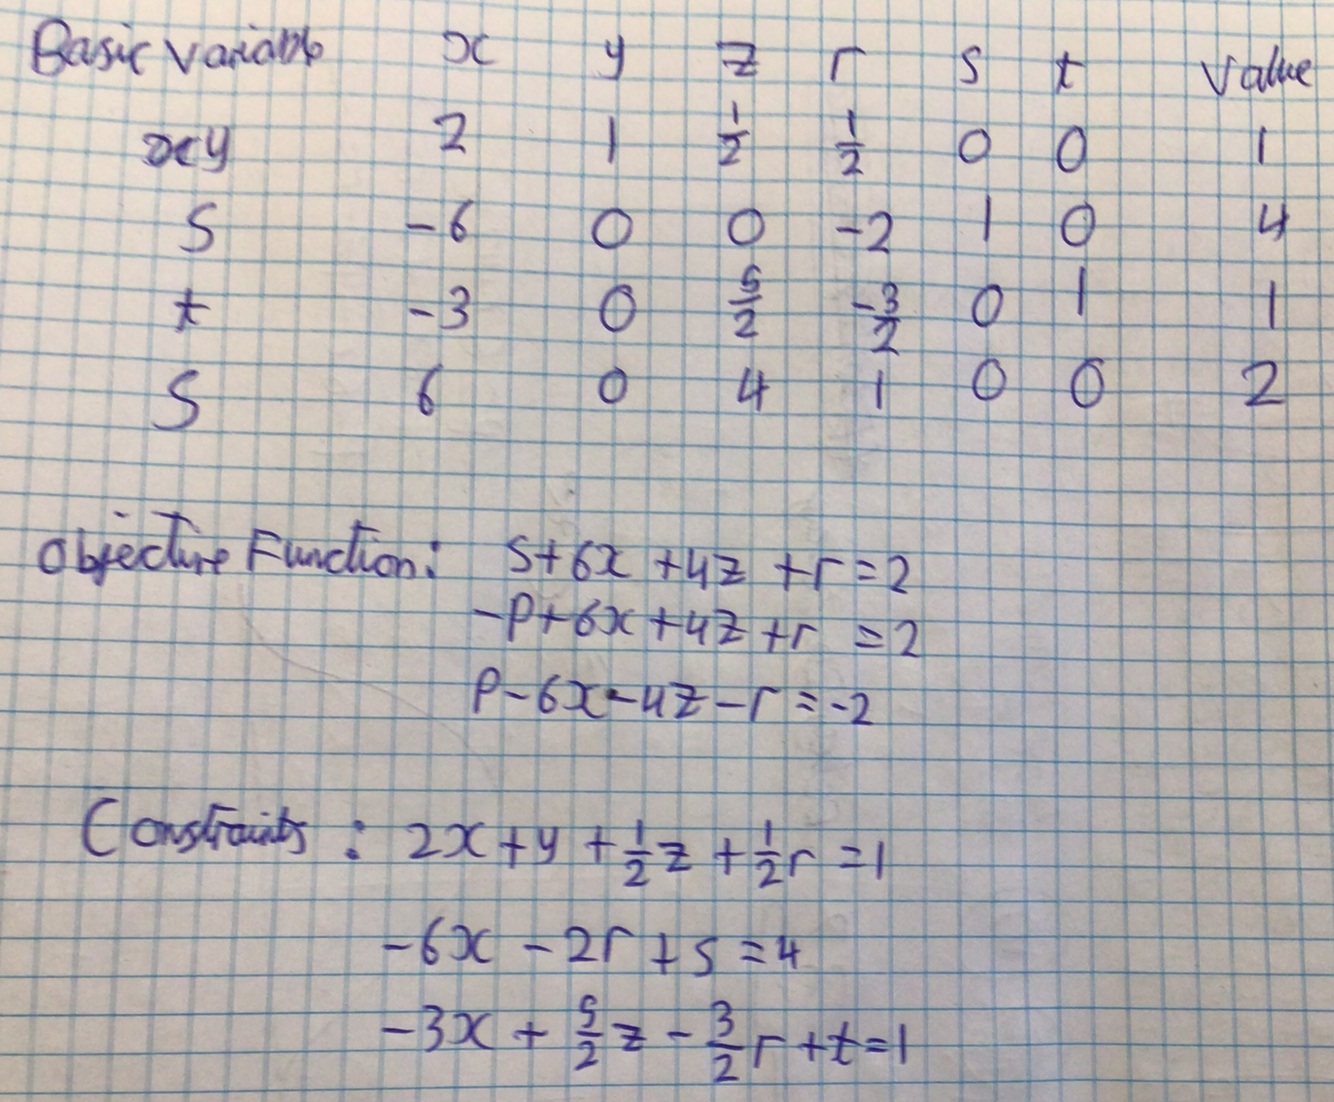 Basic Variable x y z r s t Value
xy 2 1 1/2 1/2 0 0 1
S -6 0 0 -2 1 0 4
t -3 0 5/2 -3/2 0 1 1
S 6 0 4 1 0 0 2
Objective Function: S+6x+4z+r=2
-P+6x+4z+r=2
P-6x-4z-r=-2
Constraints: 2x+y+1/2z+1/2r=1
-6x-2r+s=4
-3x+5/2z-3/2r+t=1